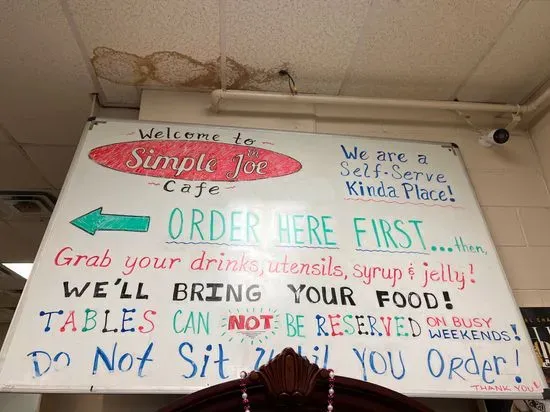 Welcome to
Simple Joe
Cafe
We are a
Self-Serve
Kinda Place!
ORDER HERE FIRST...then,
Grab your drinks, utensils, syrup & jelly!
WE'LL BRING YOUR FOOD!
TABLES CAN NOT BE RESERVED ON BUSY WEEKENDS!
Do Not Sit Until YOU Order!
THANK YOU!